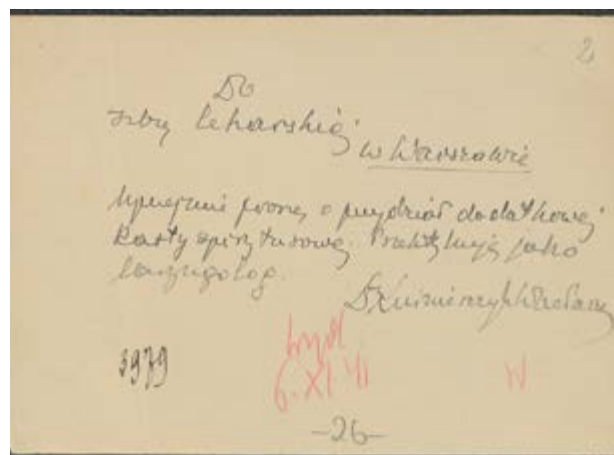 2
Do
Izby lekarskiej
w Warszawie
Uprzejmie proszę o przydział dodatkowej
karty spirytusowej. Praktykuję jako
laryngolog.
Dr
3979
wyd
6. XI 41
W
-26-